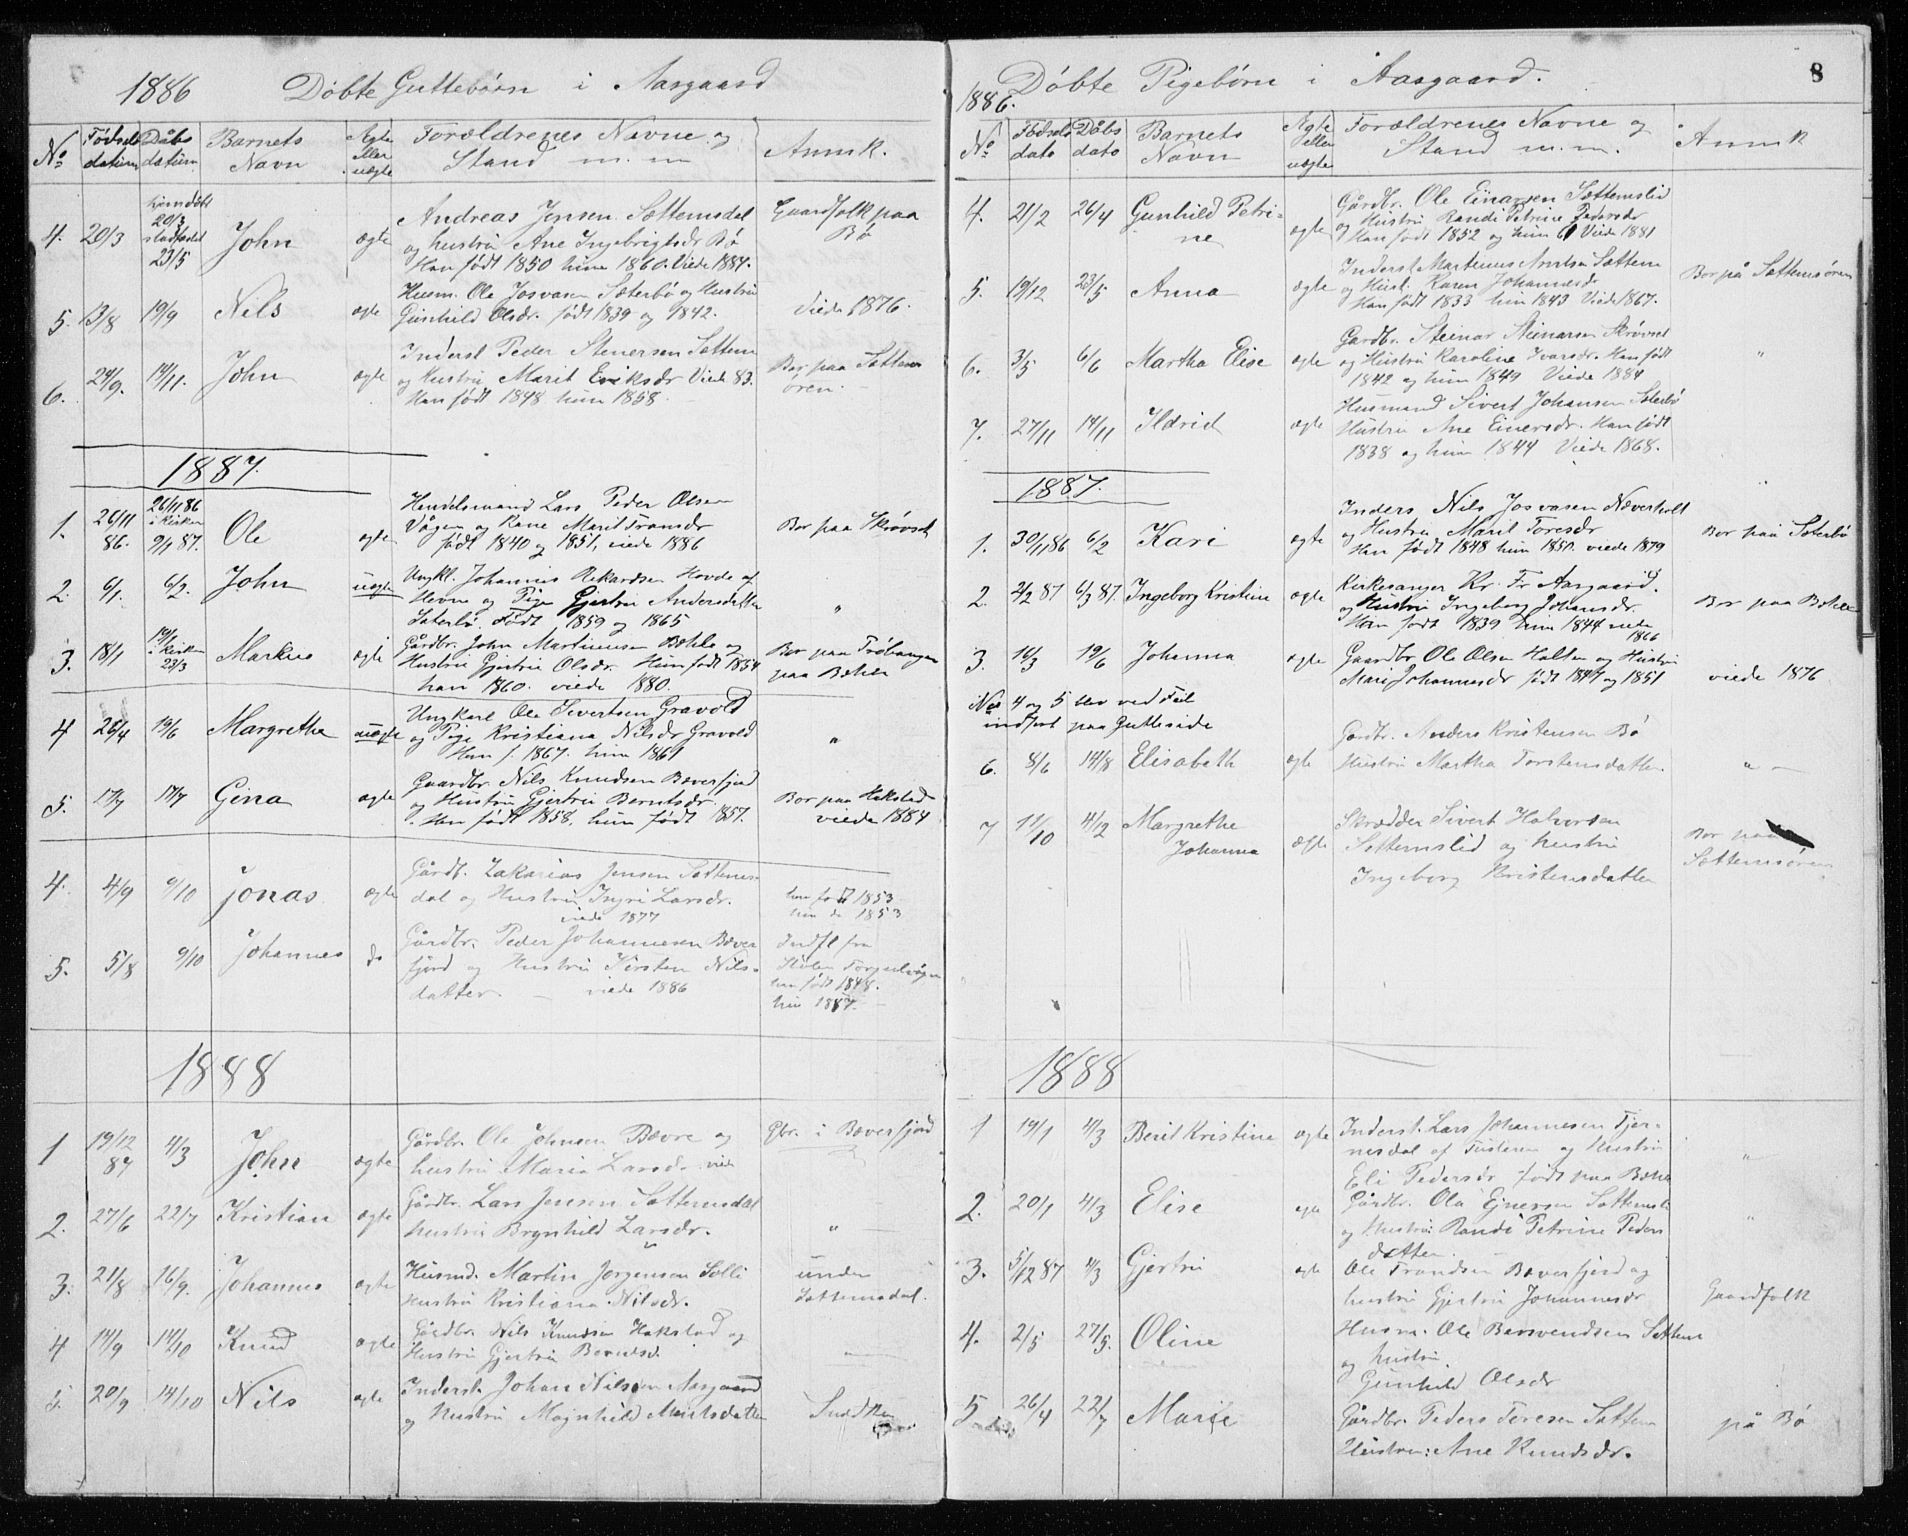 1886 Døbte Guttebørn i Aasgaard
No Fødsels datum Daabs datum Barnets Navn Ægte eller uægte Forældrenes Navne og Stand m. m Anmk.
4. 20/3 hjemdøbt 20/3 stadfæstet 23/5 John ægte Andreas Jensen Sættemsdal
og hustru Ane Ingebrigtsdr Bø
Han født 1850 hun 1860. Viede 1884.
Gaardfolk paa Bø
5. 13/8 19/9 Nils ægte Husm. Ole Josvasen Sæterbø og Hustru
Gunhild Olsdr. født 1839 og 1842.
Viede 1876.
6. 24/9. 14/11. John ægte Inderst Peder Stenersen Sættem
og Hustru Marit Eriksdr Viede 83.
Han født 1848 hun 1858
Bor paa Sættemsøren.
1887.
1. 26/11 86. 26/11 86 i Kirken 9/1 87. Ole ægte Handelsmand Lars Peder Olsen
Vågen og Kone Marit Fransdr
født 1840 og 1851, viede 1886
Bor paa Skrøvset
2. 6/1. 6/2. John uægte Ungkl. Johannes Rikardsen Hovde af
Hevne og Pige Gjertru Andersdatter
Sæterbø. Født 1859 og 1865
"
3. 18/1 i Kirken 23/3 Markus ægte Gårdbr. John Martinusen Bæhle og
Hustru Gjertru Olsdr. Hun født 1854
han 1860. viede 1880.
Bor paa
paa Bæhle
4 26/4 19/6 Margrethe uægte Ungkarl Ole Sivertsen Gravold
og Pige Kristiana Nilsdr Gravold
Han f. 1867. hun 1861
"
5. 17/7 Gina ægte Gaardbr. Nils Knudsen Bæverfjord
og Hustru Gjertru Berntsdr.
Han født 1858. hun født 1857.
Bor paa Hakstad
viede 1884
4. 4/9 9/10 Jonas ægte Gårdb. Zakarias Jensen Sættems-
dal og Hustru Ingri Larsdr.
viede 1877
han født 1853
hun do 1853
5. 5/8 9/10 Johannes do Gårdbr. Peder Johannesen Bæver
fjord og Hustru Kirsten Nils-
datter. — viede 1886
Indfl fra
han født 1848.
hun 1857.
1888
1 19/12 87 4/3 John ægte Gårdbr. Ole Johnsen Bævre og
hustru Maria Larsdr viede
Gbr. i Bæverfjord
2. 27/6 22/7 Kristian ægte Gårdbr. Lars Jensen Sættemsdal
hustru Brynhild Larsdr.
"
3. 21/8 16/9. Johannes ægte Husmd. Martin Jørgensen Solli
Hustru Kristiana Nilsdr.
under
Sættemsdal.
4 14/9 14/10 Knud ægte Gårdbr. Nils Knudsen Hakstad og
Hustru Gjertru Berntsd.
5. 20/9 14/10 Nils ægte Inderst. Johan Nilsen Aasgaard
og Hustru Magnhild Maritsdatter
Snedker
8
1886. Døbte Pigebørn i Aasgaard.
No Fødsels dato Daabs dato Barnets Navn Ægte eller uægte Forældrenes Navne og Stand m. m. Anmk
4. 21/2 26/4 Gunhild Petri-
ne ægte Gårdbr. Ole Einarsen Sættemslid
og Hustru Randi Petrine Pedersdr
Han født 1852 og hun 61 Viede 1881
5. 19/12 23/5 Anna ægte Inderst Martinus Arntsen Sættem
og Hust. Karen Johannesdr
Han født 1833 hun 1843 Viede 1867.
Bor på Sættemsøren
6. 3/5 6/6 Martha Elise ægte Gårdbr. Steinar Steinarsen Skrøvset
og Hustru Karoline Ivarsdr. Han født
1842 og hun 1849 Viede 1884
"
7. 27/11 14/11 Ildrid ægte Husmand Sivert Johansen Sæterbø
Hustru Ane Einersdr. Han født
1838 og hun 1844 Viede 1868.
1887.
1. 30/11 86 6/2 Kari ægte Inders Nils Josvasen Næverholt
og Hustru Marit Toresdr
Han født 1848 hun 1850. viede 1879
Bor paa Sæterbø
2. 2/2 87 6/3 87. Ingeborg Kristine ægte Kirkesanger Kr. Fr Aasgaard.
og Hustru Ingeborg Johansdr.
Han født 1839 hun 1844 viede
1866
Bor paa Bæhle
3. 19/6 Johanna ægte Gaardbr Ole Olsen Holten og Hustru
Mari Johannesdr født 1847 og 1851
viede 1876
No 4 og 5 blev ved Feil
indført paa Gutteside
6. 8/6 14/8 Elisabeth ægte Gårdbr. Anders Kristensen Bø
Hustru Martha Torstensdatter.
" —
7 11/10 4/12 Margrethe
Johanna ægte Skrædder Sivert Halvorsen
Sættemslid og hustru
Ingeborg Kristensdatter
Bor paa
Sættemsøren
1888
1 19/1 4/3 Berit Kristine ægte Inderst. Lars Johannesen Tjer-
nesdal af Tustern og Hustru
Eli Pedersdr født paa Bæhle
"
2. 20/1 4/3 Elise ægte Gårdbr. Ola Ejnersen Sættemsli
og Hustru: Randi Petrine Peders
datter.
"
3. 5/12 87 4/3 Gjertru ægte Ole Trondsen Bæverfjord og
hustru Gjertru Johannesdr
Gaardfolk
4. 2/5 27/5. Oline Husm. Ole Bersvendsen Sættem
og hustru
Gunhild Olsdr
5 26/4 22/7 Marie Gårdbr. Peders Toresen Sættem
Hustru: Ane Knudsdr.
på Bø